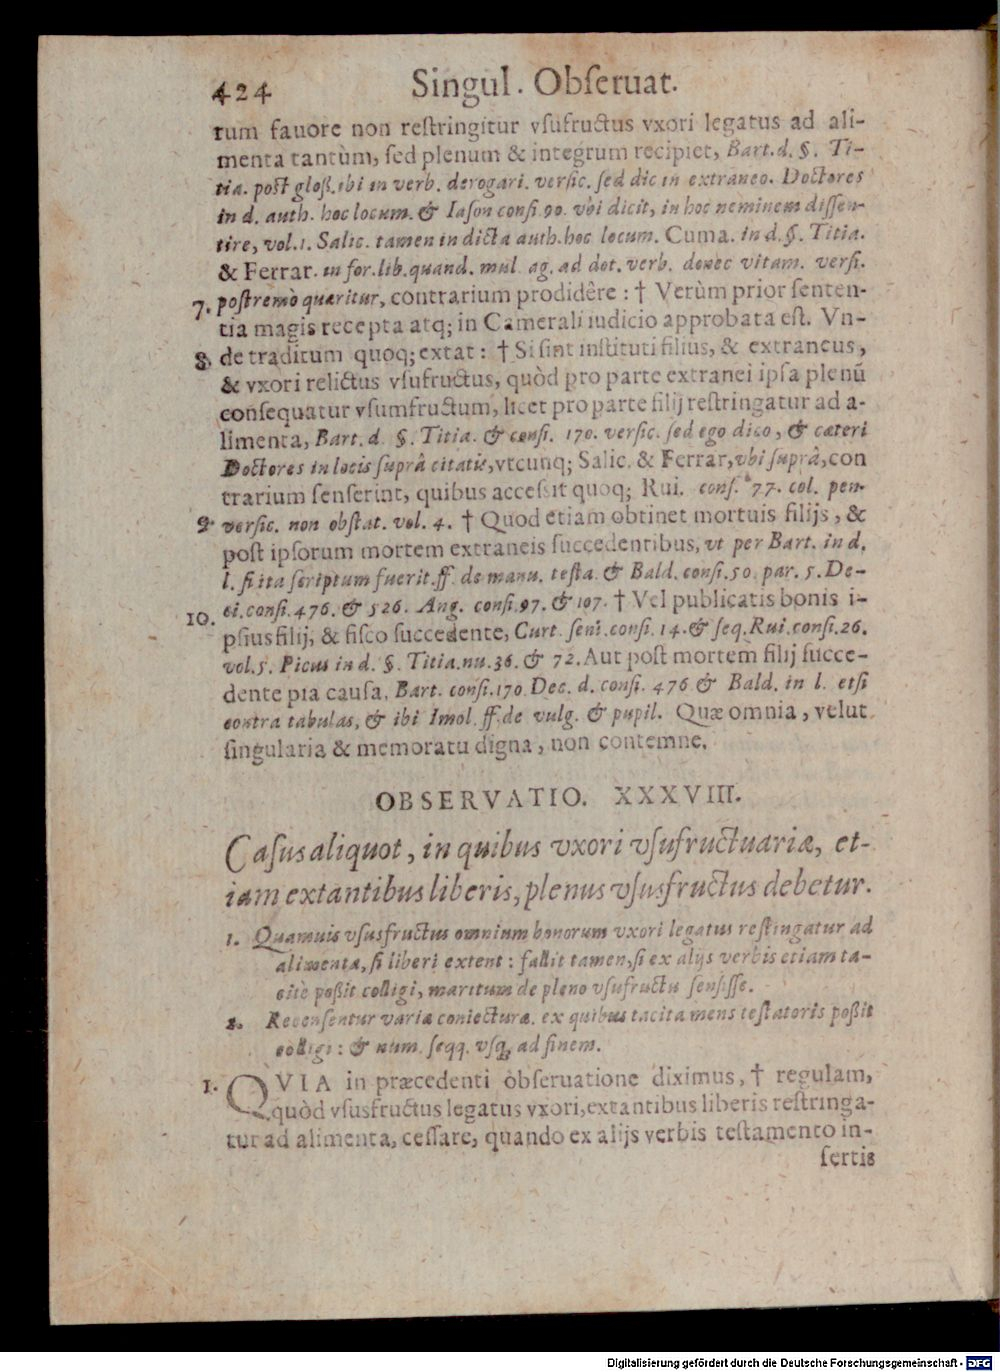 424 Singul. Obſeruat.
rum fauore non reſtringitur vſufructus vxori legatus ad ali-
menta tantùm, ſed plenum & integrum recipiet, Bart. d. §. Ti-
tia. poſt gloß. ibi in verb. derogari. verſic. ſed dic in extraneo. Doctores
in d. auth. hoc locum. & Iaſon conſi. 90. vbi dicit, in hoc neminem diſſen-
tire, vol. 1. Salic. tamen in dicta auth. hoc locum. Cuma. in d. §. Titia.
& Ferrar. in for. lib. quand. mul. ag. ad dot. verb. donec vitam. verſi.
7. poſtremò quæritur, contrarium prodidêre : † Verùm prior ſenten-
tia magis recepta atq; in Camerali iudicio approbata eſt. Vn-
8. de traditum quoq; extat : † Si ſint inſtituti filius, & extraneus,
& vxori relictus vſufructus, quòd pro parte extranei ipſa plenū
conſequatur vſumfructum, licet pro parte filij reſtringatur ad a-
limenta, Bart. d. §. Titia. & conſi. 170. verſic. ſed ego dico, & cæteri
Doctores in locis ſuprà citatis, vtcunq; Salic. & Ferrar, vbi ſuprà, con
trarium ſenſerint, quibus acceſsit quoq; Rui. conſ. 77. col. pen.
9. verſic. non obſtat. vol. 4. † Quod etiam obtinet mortuis filijs, &
poſt ipſorum mortem extraneis ſuccedentibus, vt per Bart. in d.
l. ſi ita ſcriptum fuerit. ff. de manu. teſta. & Bald. conſi. 50. par. 5. De-
10. ci. conſi. 476. & 526. Ang. conſi. 97. & 107. † Vel publicatis bonis i-
pſius filij, & fiſco ſuccedente, Curt. ſeni. conſi. 14. & ſeq. Rui. conſi. 26.
vol. 5. Picus in d. §. Titia. nu. 36. & 72. Aut poſt mortem filij ſucce-
dente pia cauſa, Bart. conſi. 170. Dec. d. conſi. 476 & Bald. in l. etſi
contra tabulas, & ibi Imol. ff. de vulg. & pupil. Quæ omnia, velut
ſingularia & memoratu digna, non contemne.
OBSERVATIO. XXXVIII.
Caſus aliquot, in quibus vxori vſufructuariæ, et-
iam extantibus liberis, plenus vſusfructus debetur.
1. Quamuis vſusfructus omnium bonorum vxori legatus reſtingatur ad
alimenta, ſi liberi extent : fallit tamen, ſi ex alijs verbis etiam ta-
citè poßit colligi, maritum de pleno vſufructu ſenſiſſe.
2. Recenſentur variæ coniecturæ, ex quibus tacita mens teſtatoris poßit
colligi : & num. ſeqq. vſq; ad finem.
1. QVIA in præcedenti obſeruatione diximus, † regulam,
quòd vſusfructus legatus vxori, extantibus liberis reſtringa-
tur ad alimenta, ceſſare, quando ex alijs verbis teſtamento in-
ſertis
Digitalisierung gefördert durch die Deutsche Forschungsgemeinschaft - DFG